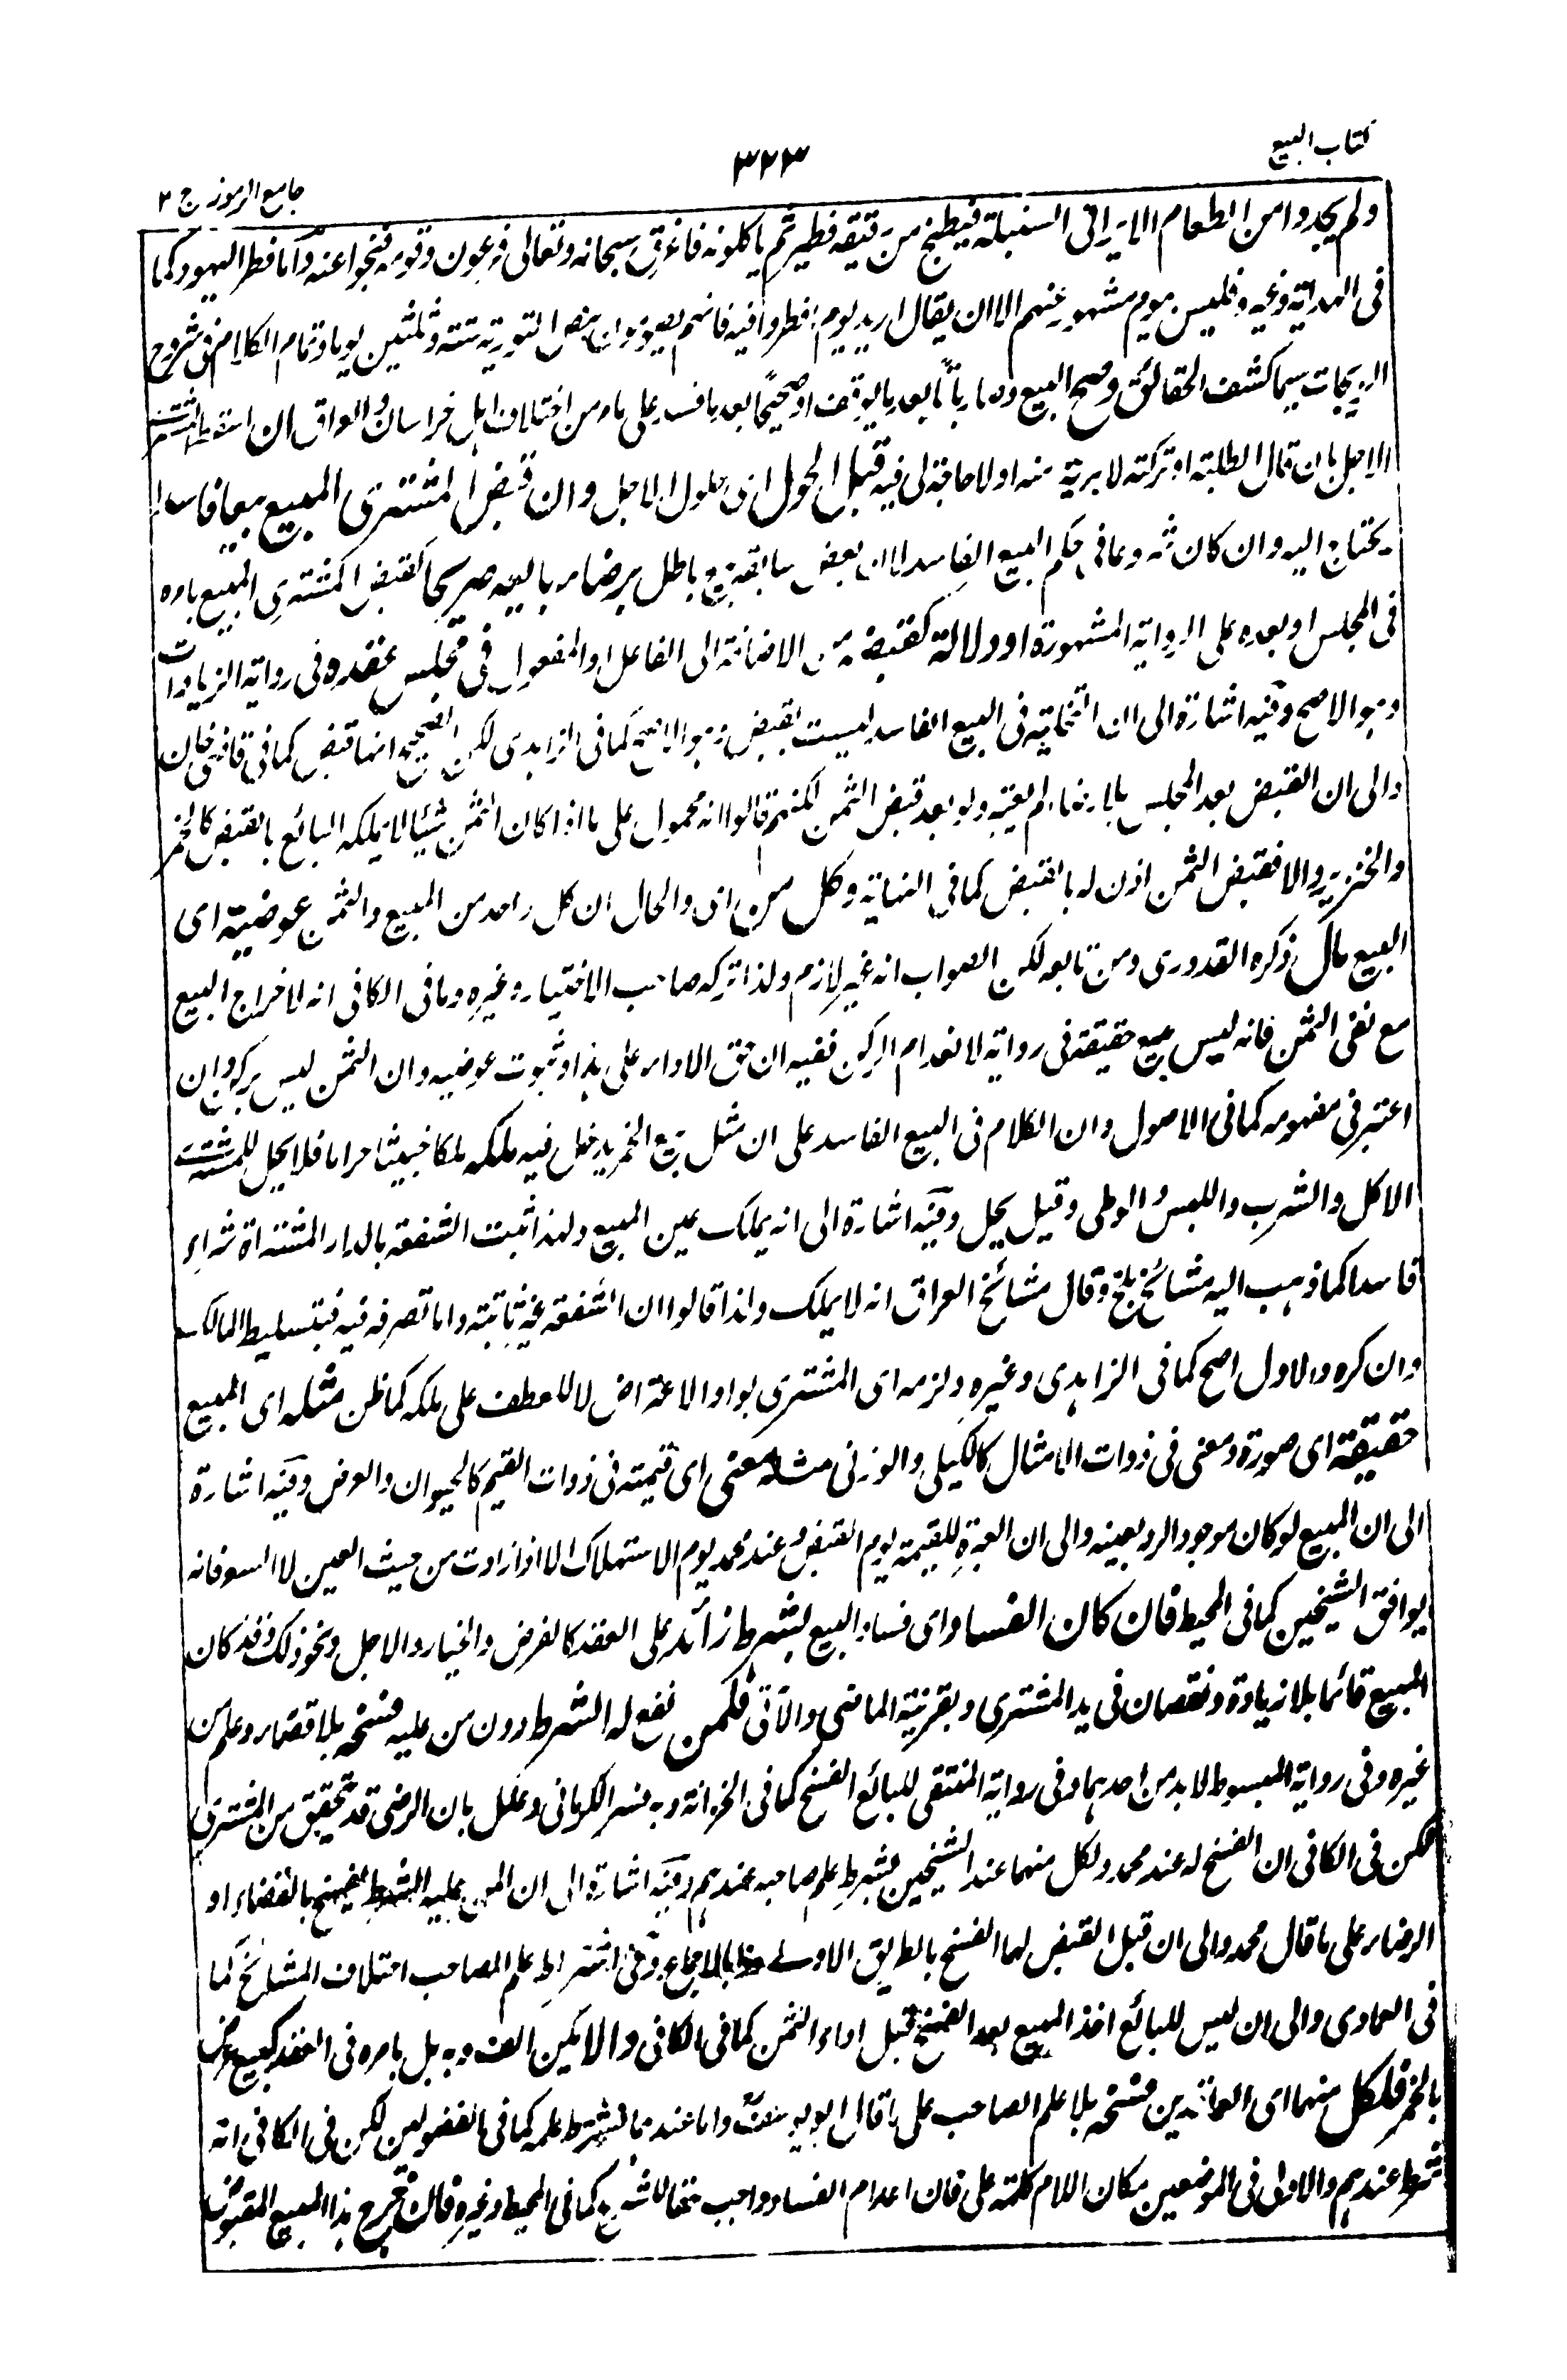 كتاب البيع
٣٢٣
جامع الرموز ج ٢
ولم يجدوا من الطعام الا بر فى السنبلة فيطبخ من دقيقه فطير ثم ياكلونه فاغرق سبحانه وتعالى فرعون وقومه فنجوا عنه واما فطر اليهود كما
فى الهداية وغيره فليس يوم مشهور عنهم الا ان يقال اريد يوم افطروا فيه فانهم يصومون بنص التورية ستة وثلثين يوما وتمام الكلام فى شروح
الزيجات سيما كشف الحقائق وصح البيع بعد ما فسد على ما مر من اختلاف اهل خراسان والعراق ان اسقط المشترى
الاجل بان قال ابطلته او تركته لا برئت منه او لا حاجة لى فيه قبل الحول اى حلول الاجل وان قبض المشترى المبيع بيعا فاسدا
يحتاج اليه وان كان ثمه وما فى حكم البيع الفاسد الا ان بعض سابقه بيع باطل برضاء بائعه صريحا كقبض المشترى المبيع بامره
فى المجلس او بعده على الرواية المشهورة او دلالة كقبضه من الاضافة الى الفاعل او المفعول فى مجلس عقده فى رواية الزيادات
وهو الاصح وفيه اشارة الى ان التخلية فى البيع الفاسد ليست بقبض وهو الاصح كما فى الزاهدى لكن الصحيح انها قبض كما فى قاضيخان
والى ان القبض بعد المجلس بلا رضاء لم يعتبر ولو بعد قبض الثمن لكنهم قالوا انه محمول على ما اذا كان الثمن شيئا لا يملكه البائع بالقبض كالخمر
والخنزير والا فقبض الثمن اذن له بالقبض كما فى النهاية وكل من اى والحال ان كل واحد من المبيع والثمن عوضيه اى
البيع مال ذكره القدورى ومن تابعه لكن الصواب انه غير لازم ولذا تركه صاحب الاختيار وغيره وما فى الكافى انه لاخراج البيع
مع نفى الثمن فانه ليس ببيع حقيقة فى رواية لانعدام الركن ففيه ان حق الاداء على هذا وثبوت عوضيه وان الثمن ليس بركن وان
اعتبر فى مفهومه كما فى الاصول وان الكلام فى البيع الفاسد على ان مثل بيع الخمر يدخل فيه ملكه ملكا خبيثا حراما فلا يحل للمشترى
الاكل والشرب واللبس والوطى وقيل يحل وفيه اشارة الى انه يملك عين المبيع ولهذا ثبت الشفعة بالدار المشتراة شراء
فاسدا كما ذهب اليه مشائخ بلخ وقال مشائخ العراق انه لا يملك ولذا قالوا ان الشفعة غير ثابتة واما تصرفه فيه فبتسليط المالك
وان كره والاول اصح كما فى الزاهدى وغيره ولزمه اى المشترى بواو الاعتراض لا للعطف على ملكه كما ظن مثله اى المبيع
حقيقة اى صورة ومعنى فى ذوات الامثال كالكيلى والوزنى مثله معنى اى قيمته فى ذوات القيم كالحيوان والعرض وفيه اشارة
الى ان المبيع لو كان موجودا لرد بعينه والى ان العبرة للقيمة يوم القبض وعند محمد يوم الاستهلاك الا اذا زادت من حيث العين لا السعر فانه
يوافق الشيخين كما فى المحيط فان كان الفساد اى فساد البيع بشرط زائد على العقد كالقرض والخيار والاجل ونحو ذلك وقد كان
المبيع قائما بلا زيادة ونقصان فى يد المشترى وبقرينة الماضى والآتى فلمن نفع له الشرط دون من عليه فسخه بلا قضاء وعلم من
غيره وفى رواية المبسوط لابد من احدهما وفى رواية المنتقى للبائع الفسخ كما فى الخزانة وبه فسر الكرمانى وعلل بان الرضى قد تحقق من المشترى
لكن فى الكافى ان الفسخ له عند محمد ولكل منهما عند الشيخين بشرط علم صاحبه عندهم وفيه اشارة الى ان لمن عليه الشرط الفسخ بالقضاء او
الرضاء على ما قال محمد والى ان قبل القبض لهما الفسخ بالطريق الاولى بالاجماع وفى اشتراط علم الصاحب اختلاف المشائخ كما
فى العمادى والى ان ليس للبائع اخذ المبيع بعد الفسخ قبل اداء الثمن كما فى الكافى والا يكن الفساد به بل بامر فى العقد كبيع عرض
بالخمر فلكل منهما اى العاقدين فسخه بلا علم الصاحب على ما قال ابو يوسف واما عندهما فبشرط علمه كما فى الفصولين لكن فى الكافى انه
شرط عندهم والاولى فى الموضعين مكان اللام كلمة على فان اعدام الفساد واجب حقا للشرع كما فى المحيط وغيره فان خرج هذا المبيع المقبوض